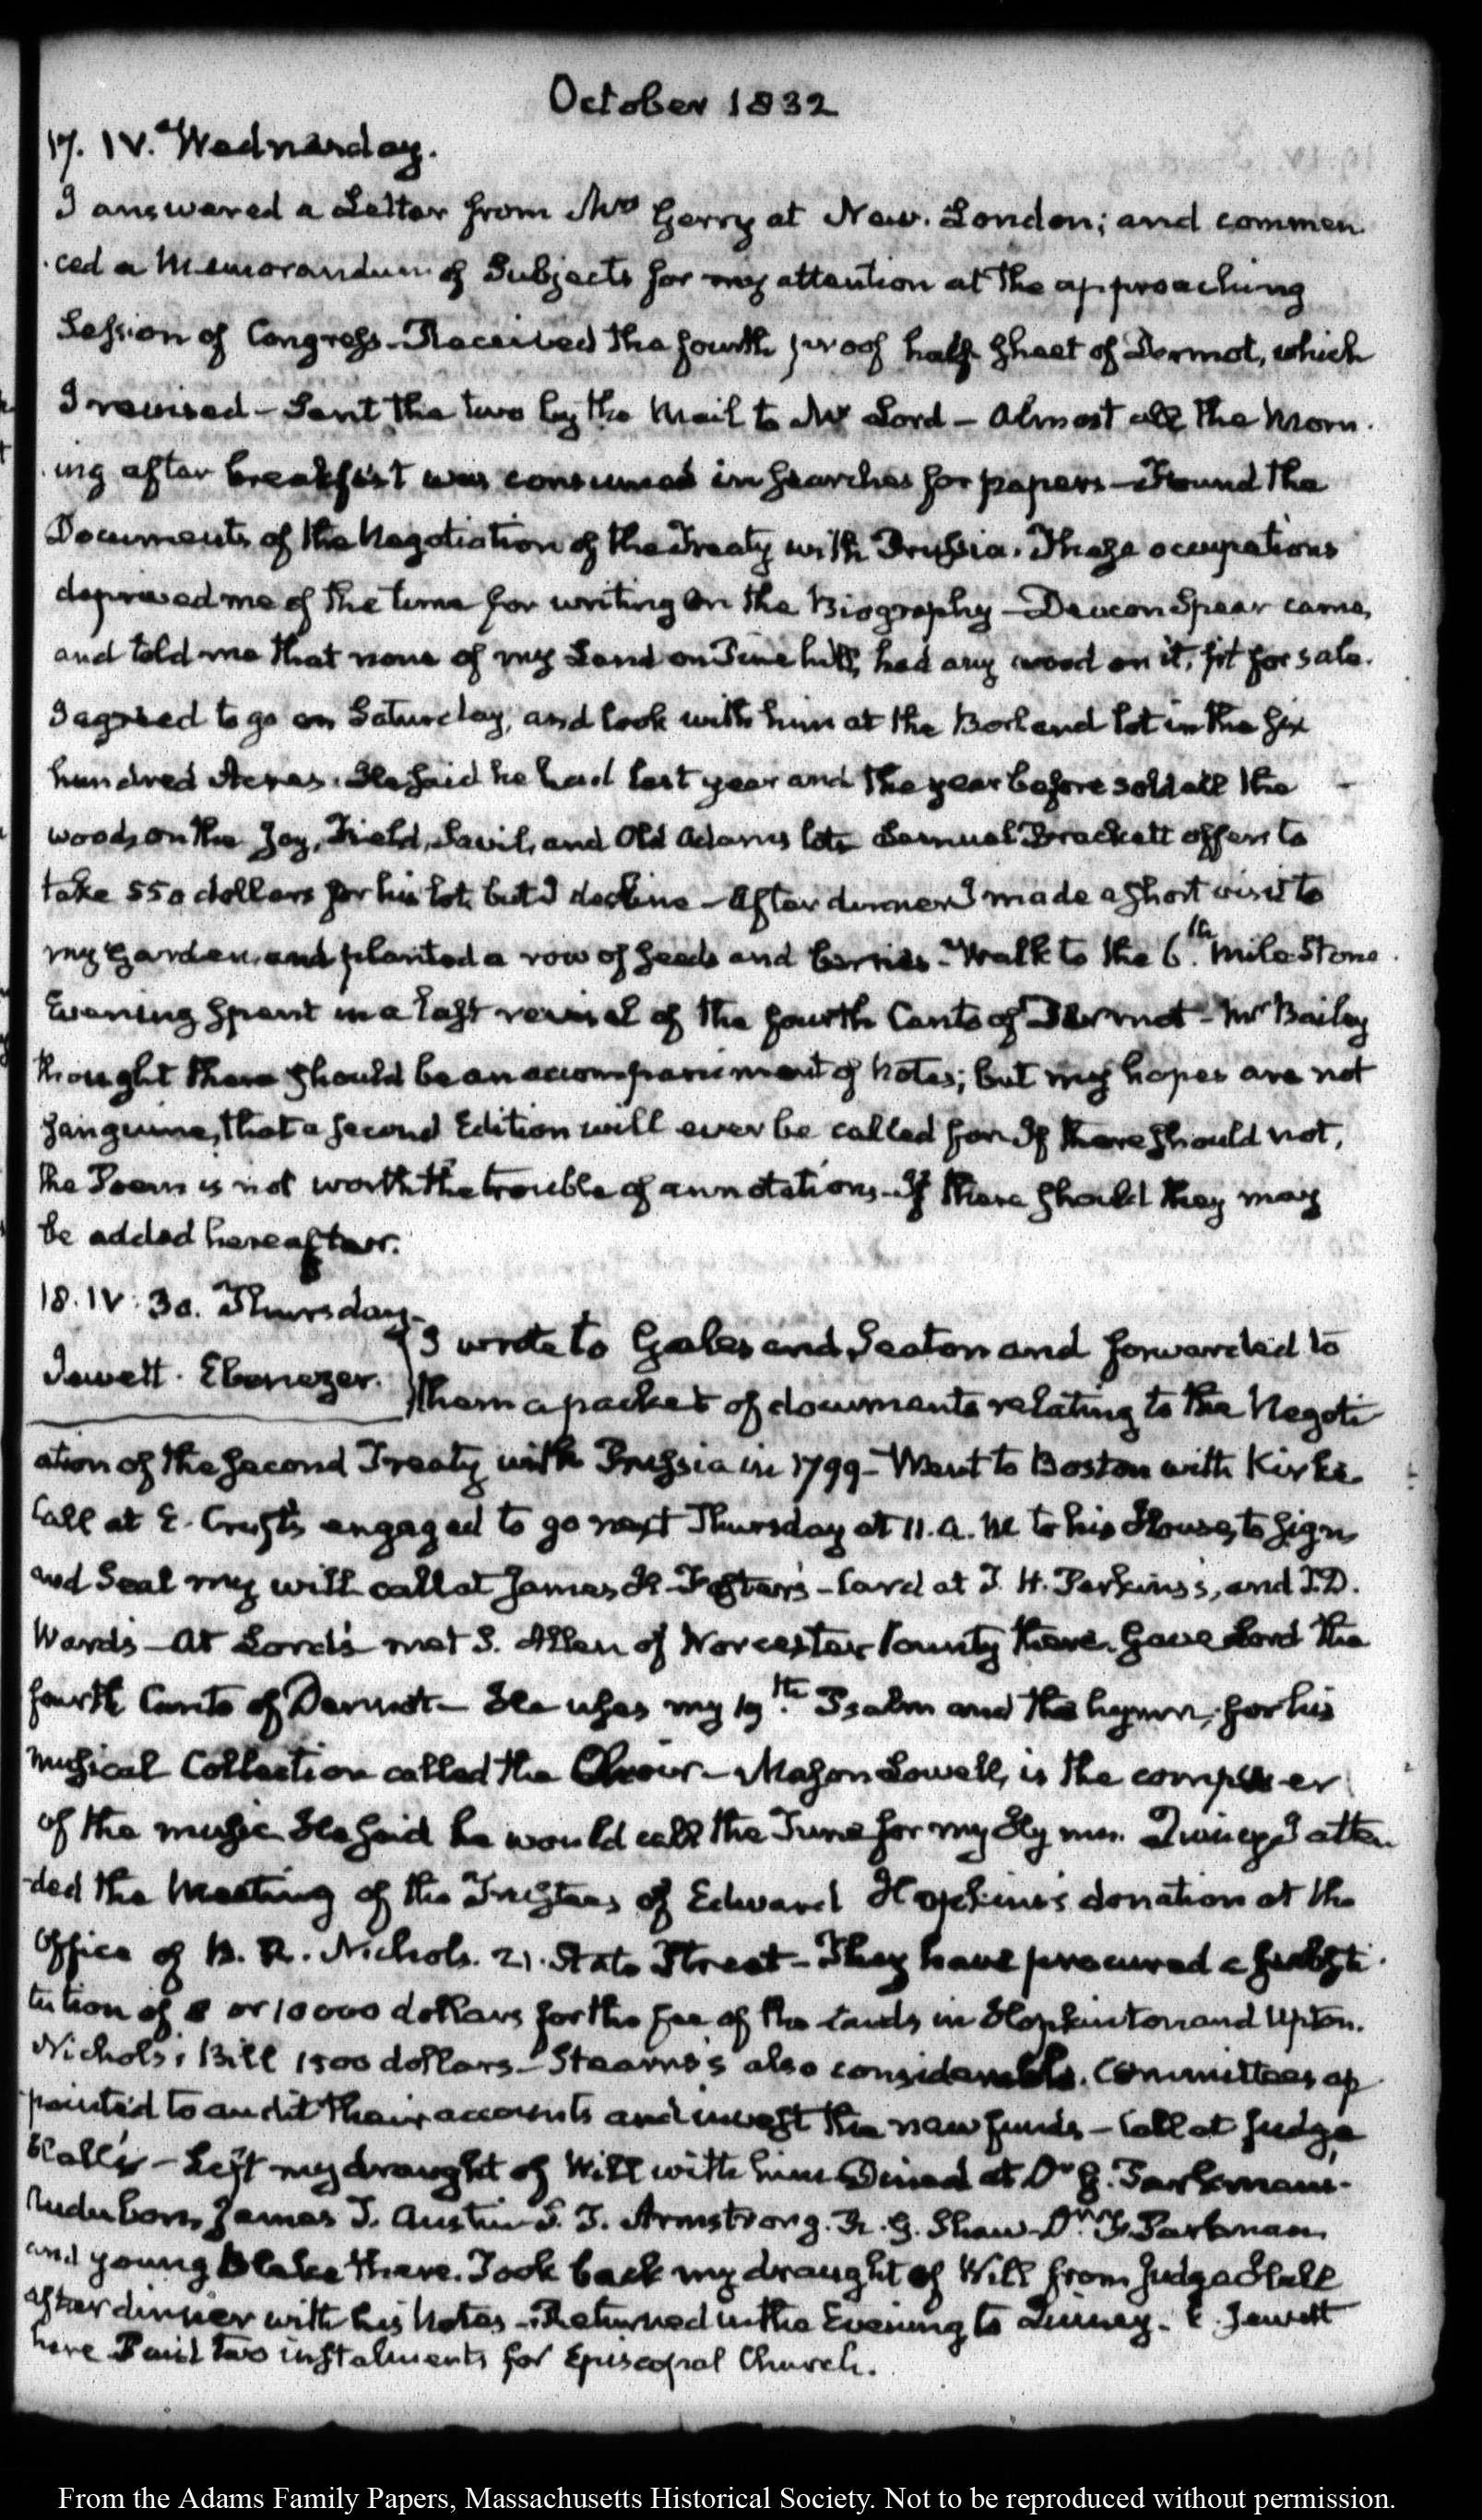 October 1832
17. IV. Wednesday.
I answered a Letter from Mrs Gerry at New-London; and commen
ced a Memorandum of Subjects for my attention at the approaching
Session of Congress. Received the fourth proof half sheet of Dermot, which
I revised – Sent the two by the Mail to Mr Lord – Almost all the Morn-
ing after breakfast was consumed in searches for papers – Found the
Documents of the Negotiation of the Treaty with Prussia. These occupations
deprived me of the time for writing on the Biography – Deacon Spear came,
and told me that none of my Land on Pine hill, had any wood on it, fit for sale.
I agreed to go on Saturday, and look with him at the Borland lot in the six
hundred Acres. He said he had last year and the year before sold all the
woods on the Joy, Field, Savil, and Old Adams lots Samuel Brackett offers to
take 550 dollars for his lot, but I decline – After dinner I made a short visit to
my Garden, and planted a row of seeds and berries – Walk to the 6th Mile Stone.
Evening spent in a last revisal of the fourth Canto of Dermot – Mr Bailey
thought there should be an accompaniment of Notes; but my hopes are not
sanguine, that a second Edition will ever be called for. If there should not,
the Poem is not worth the trouble of annotations – If there should they may
be added hereafter.
18. IV. 30. Thursday.
Jewett. Ebenezer.
I wrote to Gales and Seaton and forwarded to
them a packet of documents relating to the Negoti
ation of the second Treaty with Prussia in 1799 – Went to Boston with Kirke.
Call at E. Cruft's engaged to go next Thursday at 11. A.M to his House, to sign
and Seal my will call at James H. Foster's – Card at T. H. Perkins's, and T. D.
Ward's – At Lord's met S. Allen of Worcester County there. Gave Lord the
fourth Canto of Dermot – He uses my 19th Psalm and the hymn, for his
musical Collection called the Choir – Mason Lowell, is the composer
of the music He said he would call the Tune for my Hymn. Quincy I atten
ded the Meeting of the Trustees of Edward Hopkins's donation at the
Office of B. R. Nichols. 21. State Street – They have procured a substi-
tution of 8 or 10000 dollars for the fee of the Lands in Hopkinton and Upton.
Nichols's Bill 1500 dollars – Stearns's also considerable. Committees ap
pointed to audit their accounts and invest the new funds – Call at Judge
Hall's – Left my draught of Will with him Dined at Dr G. Parkman's.
Audubon, James T. Austin S. T. Armstrong. R. G. Shaw Dr Parkman
and young Blake there. Took back my draught of Will from Judge Hall
after dinner with his Notes – Returned in the Evening to Quincy. E. Jewett
here Paid two instalments for Episcopal Church.
From the Adams Family Papers, Massachusetts Historical Society. Not to be reproduced without permission.